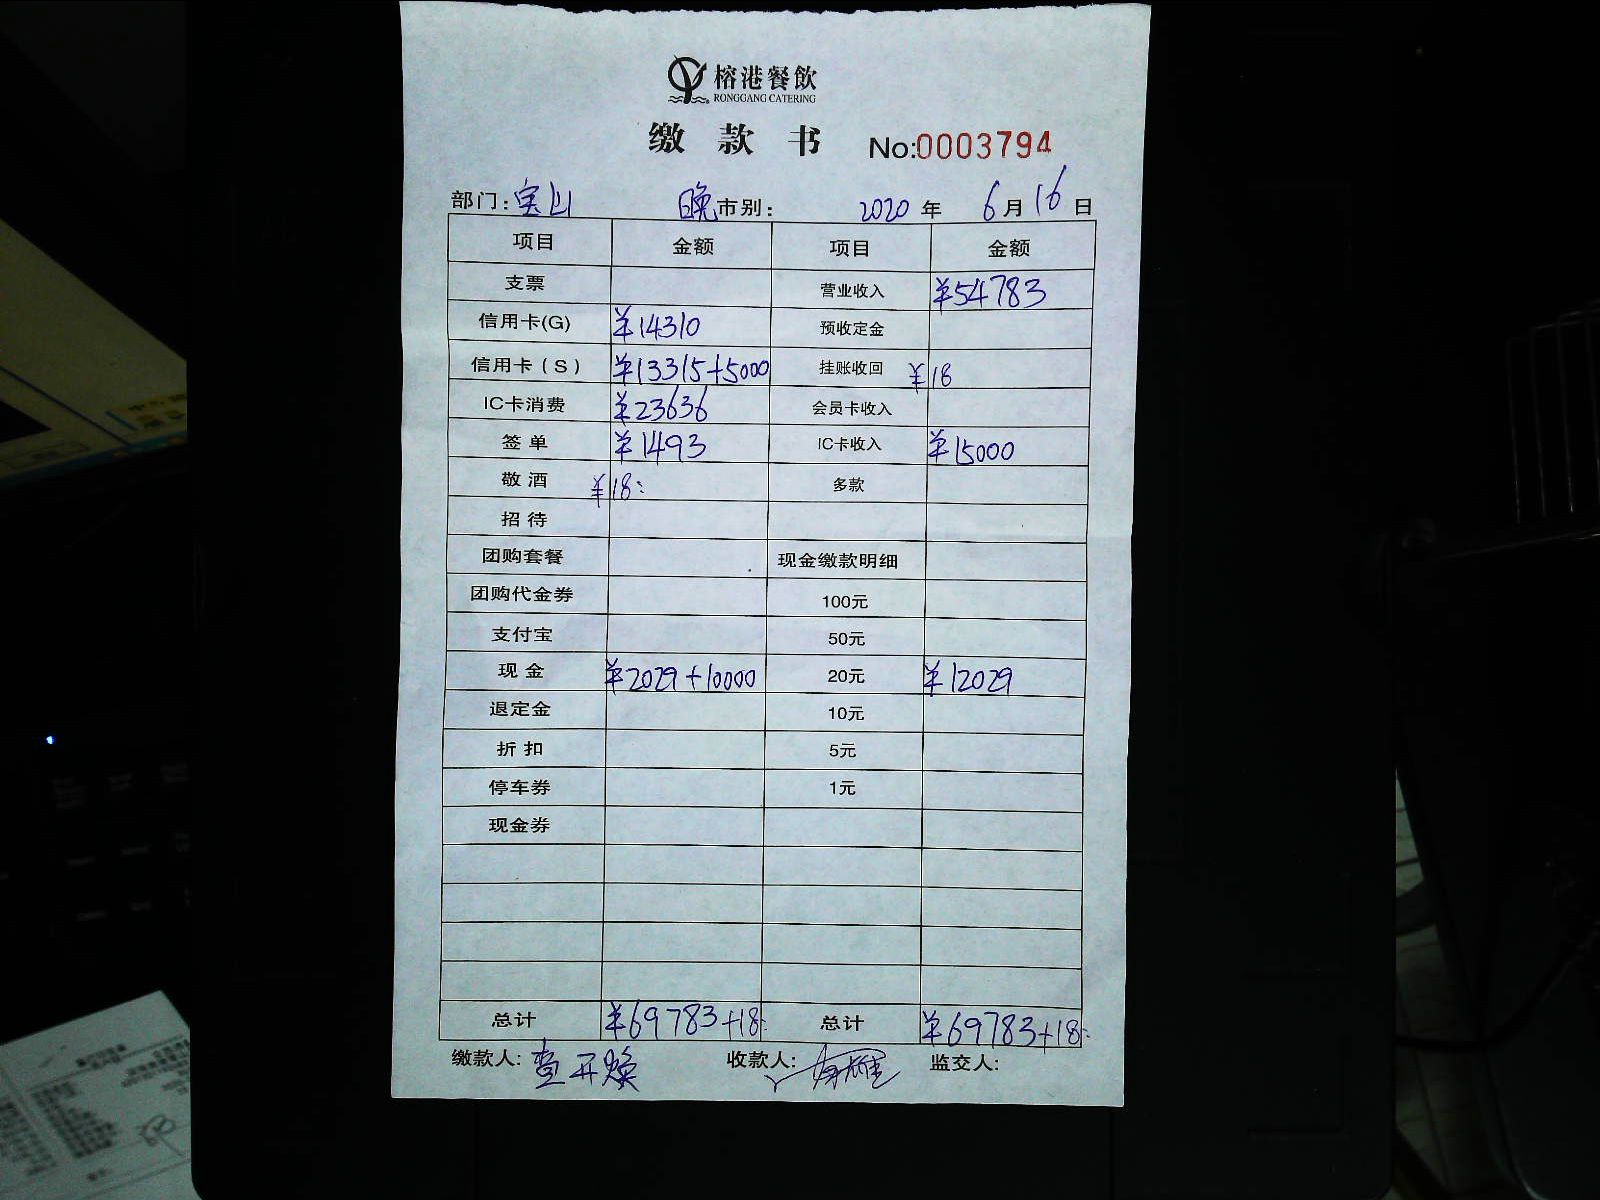 榕港餐飲
RONGGANG CATERING
缴款书 No:0003794
部门:宝山 晚市别: 2020年 6月16日
项目 金额 项目 金额
支票 营业收入 ¥54783
信用卡(G) ¥14310 预收定金
信用卡(S) ¥13315+5000 挂账收回 ¥18
IC卡消费 ¥23636 会员卡收入
签单 ¥1493 IC卡收入 ¥15000
敬酒 ¥18: 多款
招待
团购套餐 现金缴款明细
团购代金券 100元
支付宝 50元
现金 ¥2029+10000 20元 ¥12029
退定金 10元
折扣 5元
停车券 1元
现金券
总计 ¥69783+18: 总计 ¥69783+18:
缴款人: 收款人: 监交人: